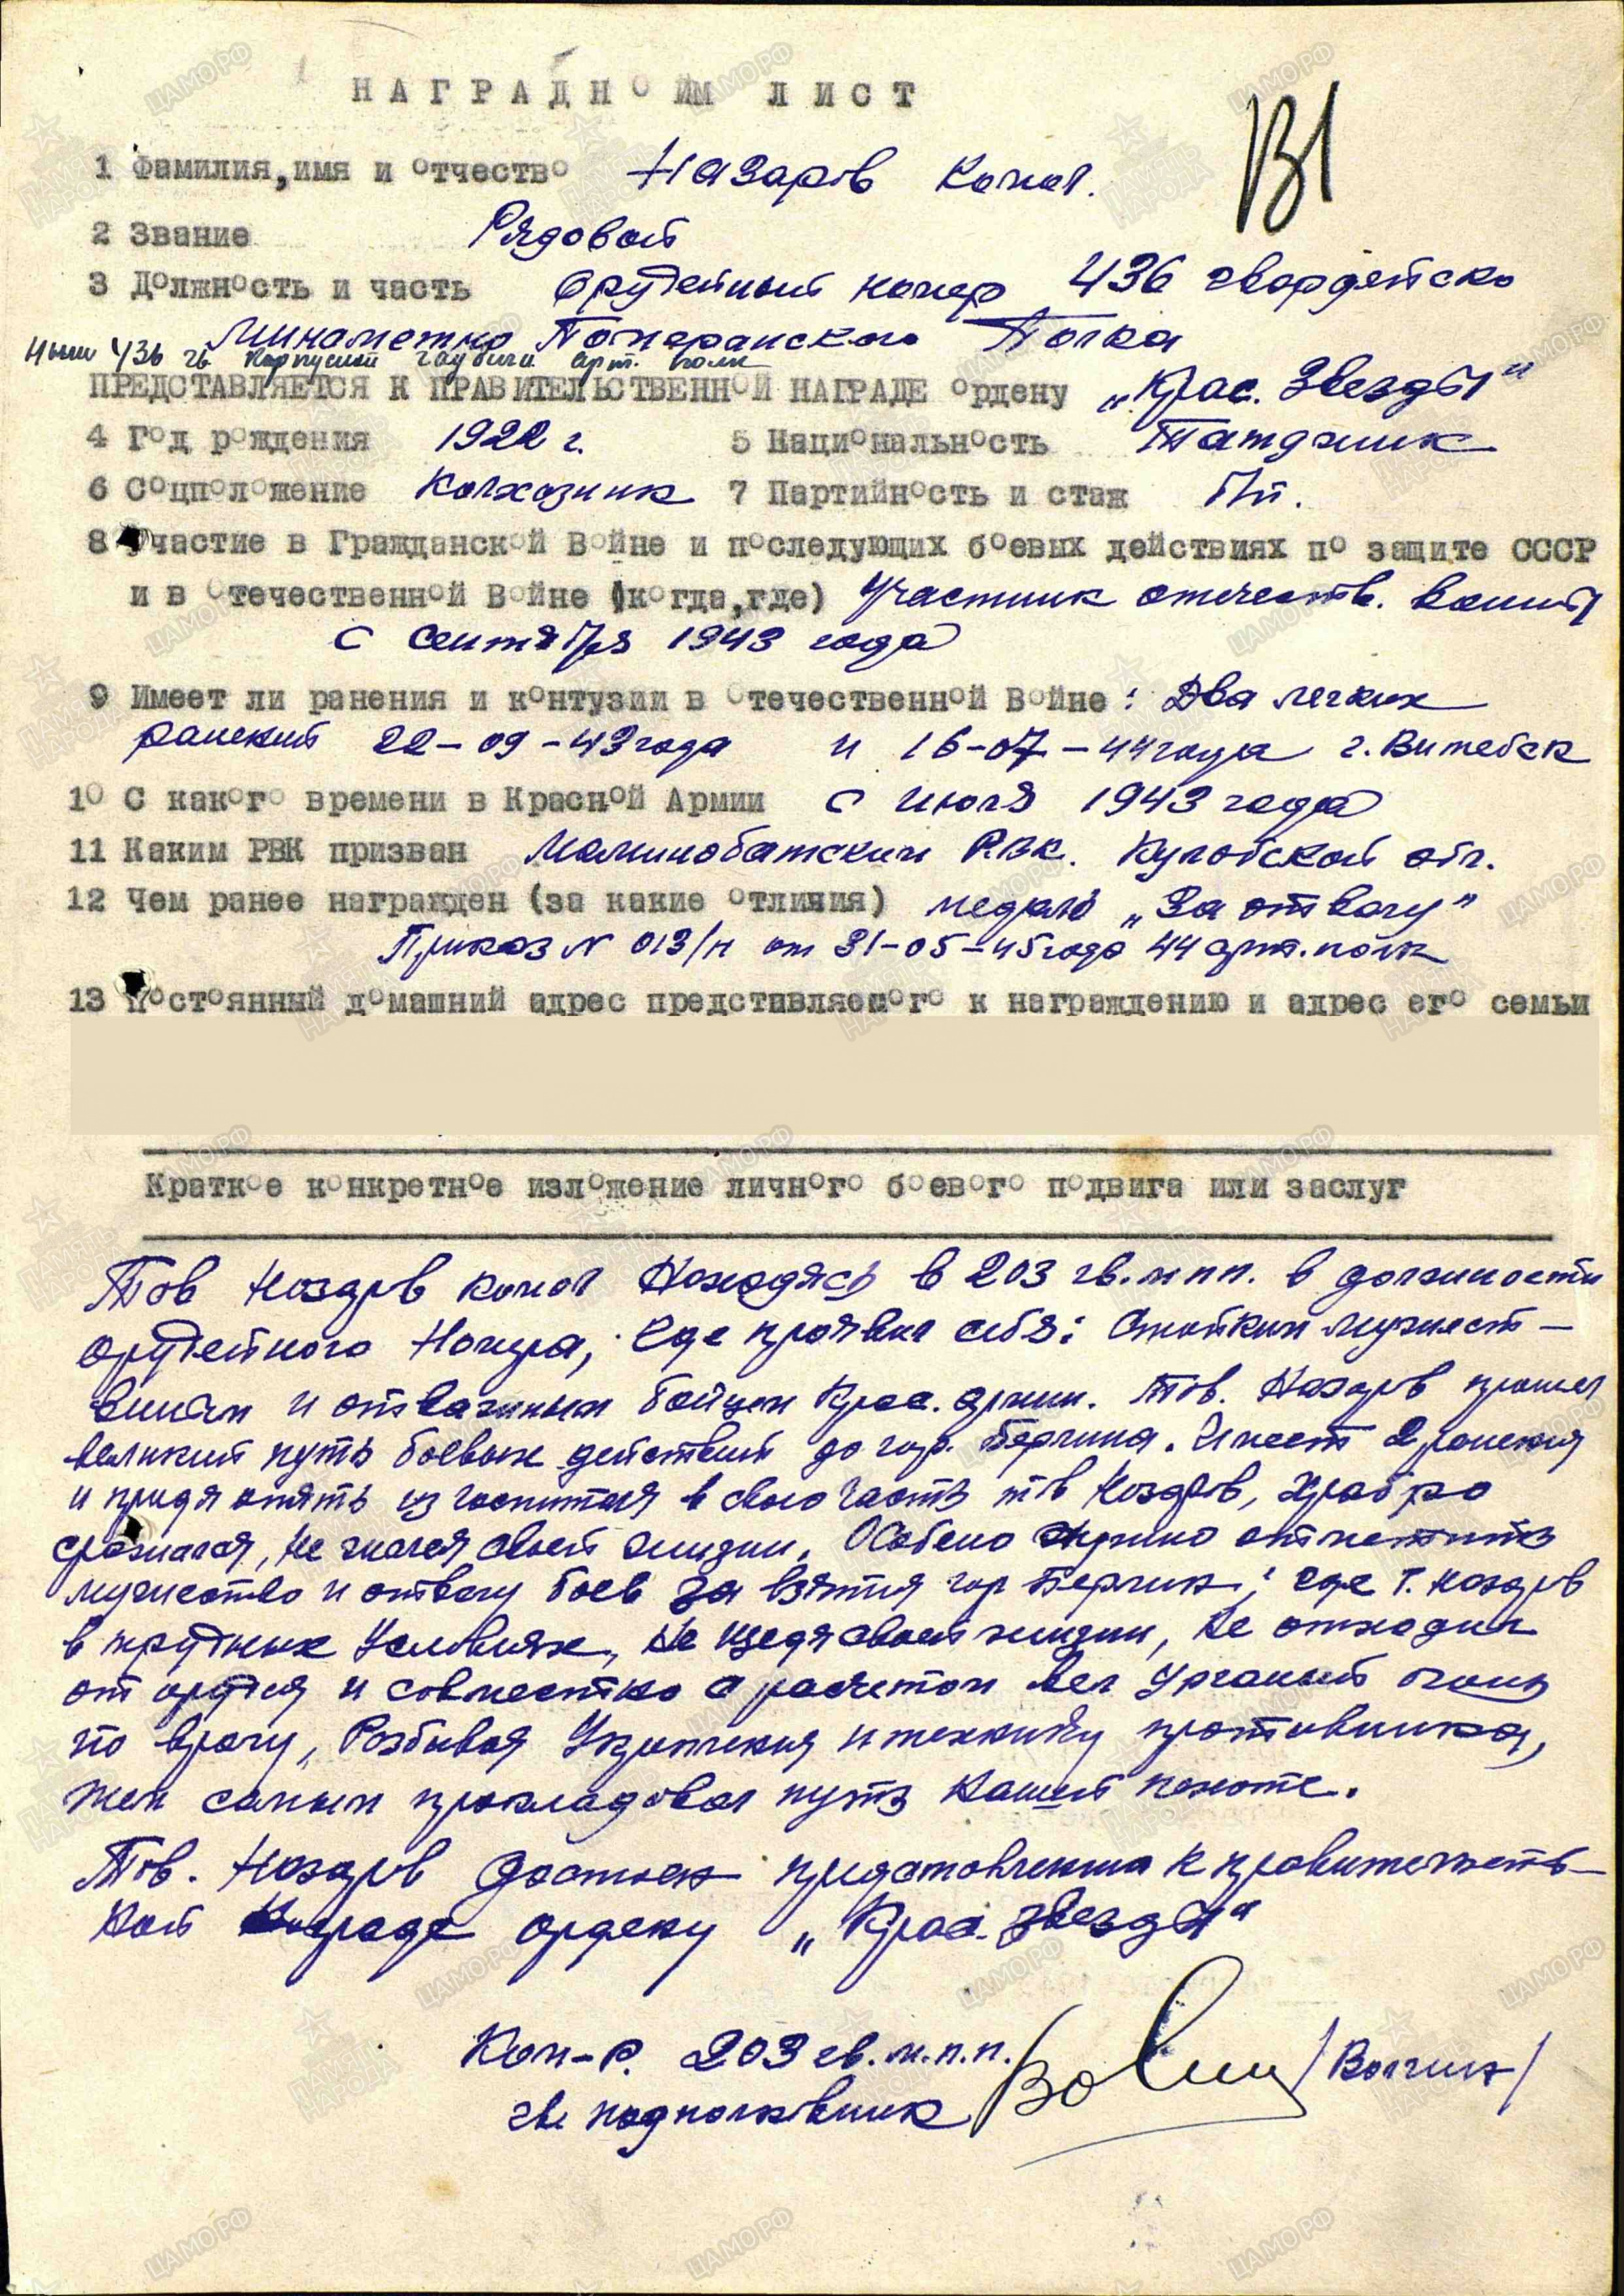 НАГРАДНОЙ ЛИСТ
131
1 Фамилия, имя и отчество Назаров Комол.
2 Звание Рядовой
3 Должность и часть Орудейный номер 436 гвардейско
Минаметно Померанского Полка
Ныне 436 гв Корпусной гаубичн арт. полк
ПРЕДСТАВЛЯЕТСЯ К ПРАВИТЕЛЬСТВЕННОЙ НАГРАДЕ ордену „Крас. Звезды"
4 Год рождения 1922 г. 5 Национальность Татджик
6 Соцположение Колхозник 7 Партийность и стаж б/п.
8 Участие в Гражданской Войне и последующих боевых действиях по защите СССР
и в Отечественной Войне (когда, где) Участник отечеств. войны
с сентября 1943 года
9 Имеет ли ранения и контузии в Отечественной Войне: Два легких
ранений 22-09-43 года и 16-07-44 года г. Витебск
10 С какого времени в Красной Армии с июля 1943 года
11 Каким РВК призван Молинобатским Р.В.К. Кулобской обл.
12 Чем ранее награжден (за какие отличия) медаль „За отвагу"
Приказ N 013/н от 31-05-45 года 44 арт. полк
13 Постоянный домашний адрес представляемого к награждению и адрес его семьи
Краткое конкретное изложение личного боевого подвига или заслуг
Тов Назаров комол Находясь в 203 гв. м.п.п. в должности
орудейного Номера, где проявил себя: Стойким мужест-
веным и отважным бойцом Крас. армии. Тов. Назаров прошел
великий путь боевых действий до гор. Берлина. Имеет 2 ранения
и придя опять из госпиталя в свою часть тов Назаров, храбро
сражался, не жалея своей жизни. Особено нужно отметить
мужество и отвагу боев за взятия гор Берлин; где т. Назаров
в трудных Условиях, не щедя своей жизни, не отходил
от орудия и совместно с расчетом вел Ураганый огонь
по врагу, Розбивая Укрепления и технику противника,
тем самым прокладовал путь нашей пехоте.
Тов. Назаров Достоен предстовления к правительств-
ной награде ордену „Крас. звезда"
Ком-р. 203 гв. м.п.п. /Волгин/
гв. подполковник